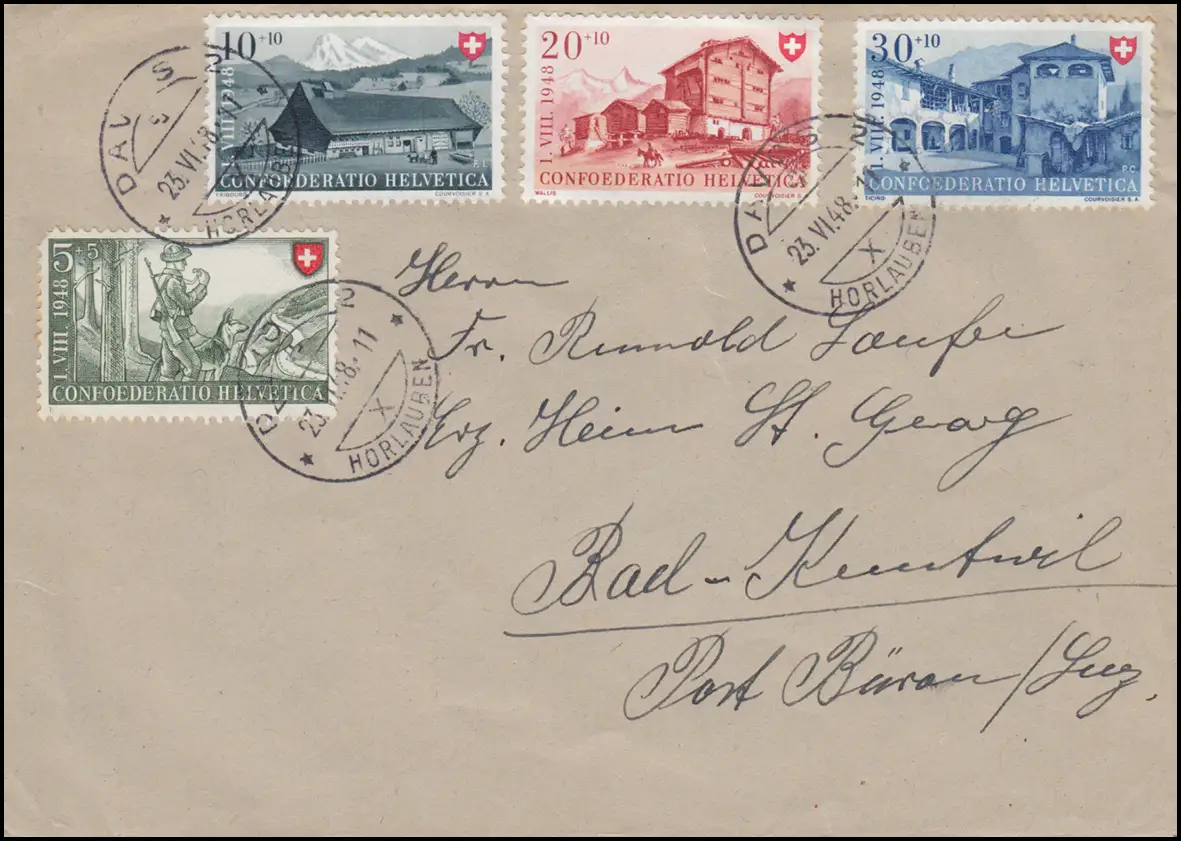 10+10
I. VIII. 1948
CONFOEDERATIO HELVETICA
FRIBOURG
COURVOISIER S.A.
20+10
I. VIII. 1948
CONFOEDERATIO HELVETICA
WALLIS
COURVOISIER S.A.
30+10
I. VIII. 1948
P.C.
CONFOEDERATIO HELVETICA
TICINO
COURVOISIER S.A.
DAVOS 2
23.VI.48.-11
HORLAUBEN
DAVOS 2
23.VI.48.-11
X
HORLAUBEN
5+5
I. VIII. 1948
CONFOEDERATIO HELVETICA
DAVOS 2
23.VI.48.-11
X
HORLAUBEN
Herrn
Fr. Laufer
Heim St. Georg
Bad-Knutwil
Post Büron/Luz.